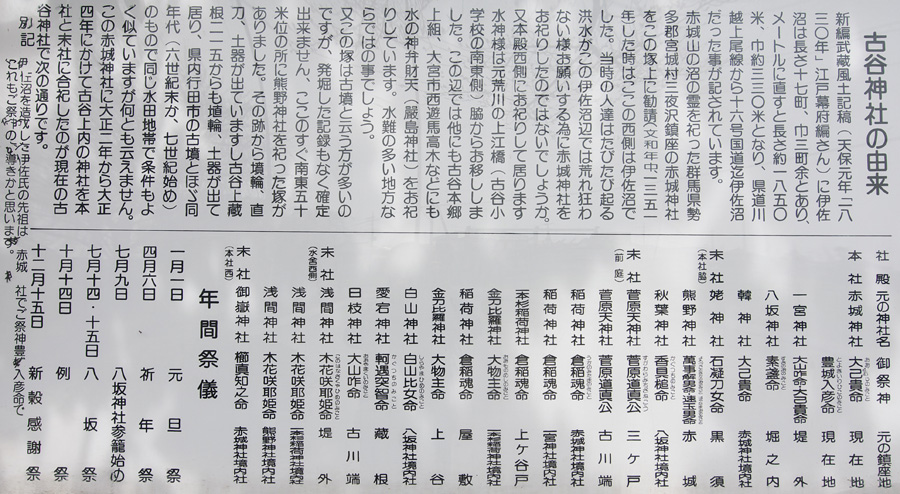 古谷神社の由来
新編武蔵風土記稿(天保元年「一八
三〇年」江戸幕府編さん)に伊佐
沼は長さ十七町、巾三町余とあり、
メートルに直すと長さ約一八五〇
米、巾約三三〇米となり、県道川
越上尾線から十六号国道迄伊佐沼
だった事が記されています。
赤城山の沼の霊を祀った群馬県勢
多郡宮城村三夜沢鎮座の赤城神社
をこの塚上に勧請(文和年中一三五一
年)した時はここの西側は伊佐沼で
した。当時の人達はたびたび起る
洪水がこの伊佐沼辺では荒れ狂わ
ない様お願いする為に赤城神社を
お祀りしたのではないでしょうか。
又本殿西側にお祀りして居ります
水神様は元荒川の上江橋(古谷小
学校の南東側)脇からお移ししま
した。この辺では他にも古谷本郷
上組、大宮市西遊馬高木などにも
水の神弁財天(厳島神社)をお祀
りしています。水難の多い地方な
らではの事でしょう。
又この塚は古墳と云う方が多いの
ですが、発掘した記録もなく確定
出来ません、このすぐ南東五十
米位の所に熊野神社を祀った塚が
ありました。その跡から埴輪、直
刀、土器が出ていますし古谷上蔵
根一二五からも埴輪、土器が出て
居り、県内行田市の古墳とほゞ同
年代(六世紀末か、七世紀始め)
のもので同じ水田地帯で条件もよ
く似ていますが何とも云えません。
この赤城神社に大正二年から大正
四年にかけて古谷上内の神社を本
社と末社に合祀したのが現在の古
谷神社で次の通りです。
別記
伊佐沼を造成した伊佐氏の先祖は 赤城 社でご祭神豊 入彦命で
これもご祭 のお導きかと思います。
社殿 元の神社名 御祭神 元の鎮座地
本社 赤城神社 大己貴命 現在地
豊城入彦命 現在地
一宮神社 大山咋命 大己貴命 堤外
八坂神社 素盞命 堀之内
韓神社 大己貴命 赤城神社境内社
末社(本社脇) 姥神社 石凝刀女命 黒須
熊野神社 赤城
秋葉神社 香具槌命 八坂神社境内社
末社(前庭) 菅原天神社 菅原道真公 三ヶ戸
菅原天神社 菅原道真公 古川端
稲荷神社 倉稲魂命 赤城神社境内社
稲荷神社 倉稲魂命 一宮神社境内社
本杉稲荷神社 倉稲魂命 上ケ谷戸
金刀比羅神社 大物主命 本杉稲荷神社境内社
稲荷神社 倉稲魂命 屋敷
金刀比羅神社 大物主命 上谷
白山神社 白山比女命 八坂神社境内社
愛宕神社 軻遇突智命 蔵根
日枝神社 大山咋命 古川端
末社(水宮西側) 浅間神社 木花咲耶姫命 堤外
浅間神社 木花咲耶姫命 本杉稲荷神社境内社
浅間神社 木花咲耶姫命 熊野神社境内社
末社(本社西) 御嶽神社 櫛真知之命 赤城神社境内社
年間祭儀
一月一日 元旦祭
四月六日 祈年祭
七月九日 八坂神社参籠始め
七月十四・十五日 八坂祭
十月十四日 例祭
十二月十五日 新穀感謝祭